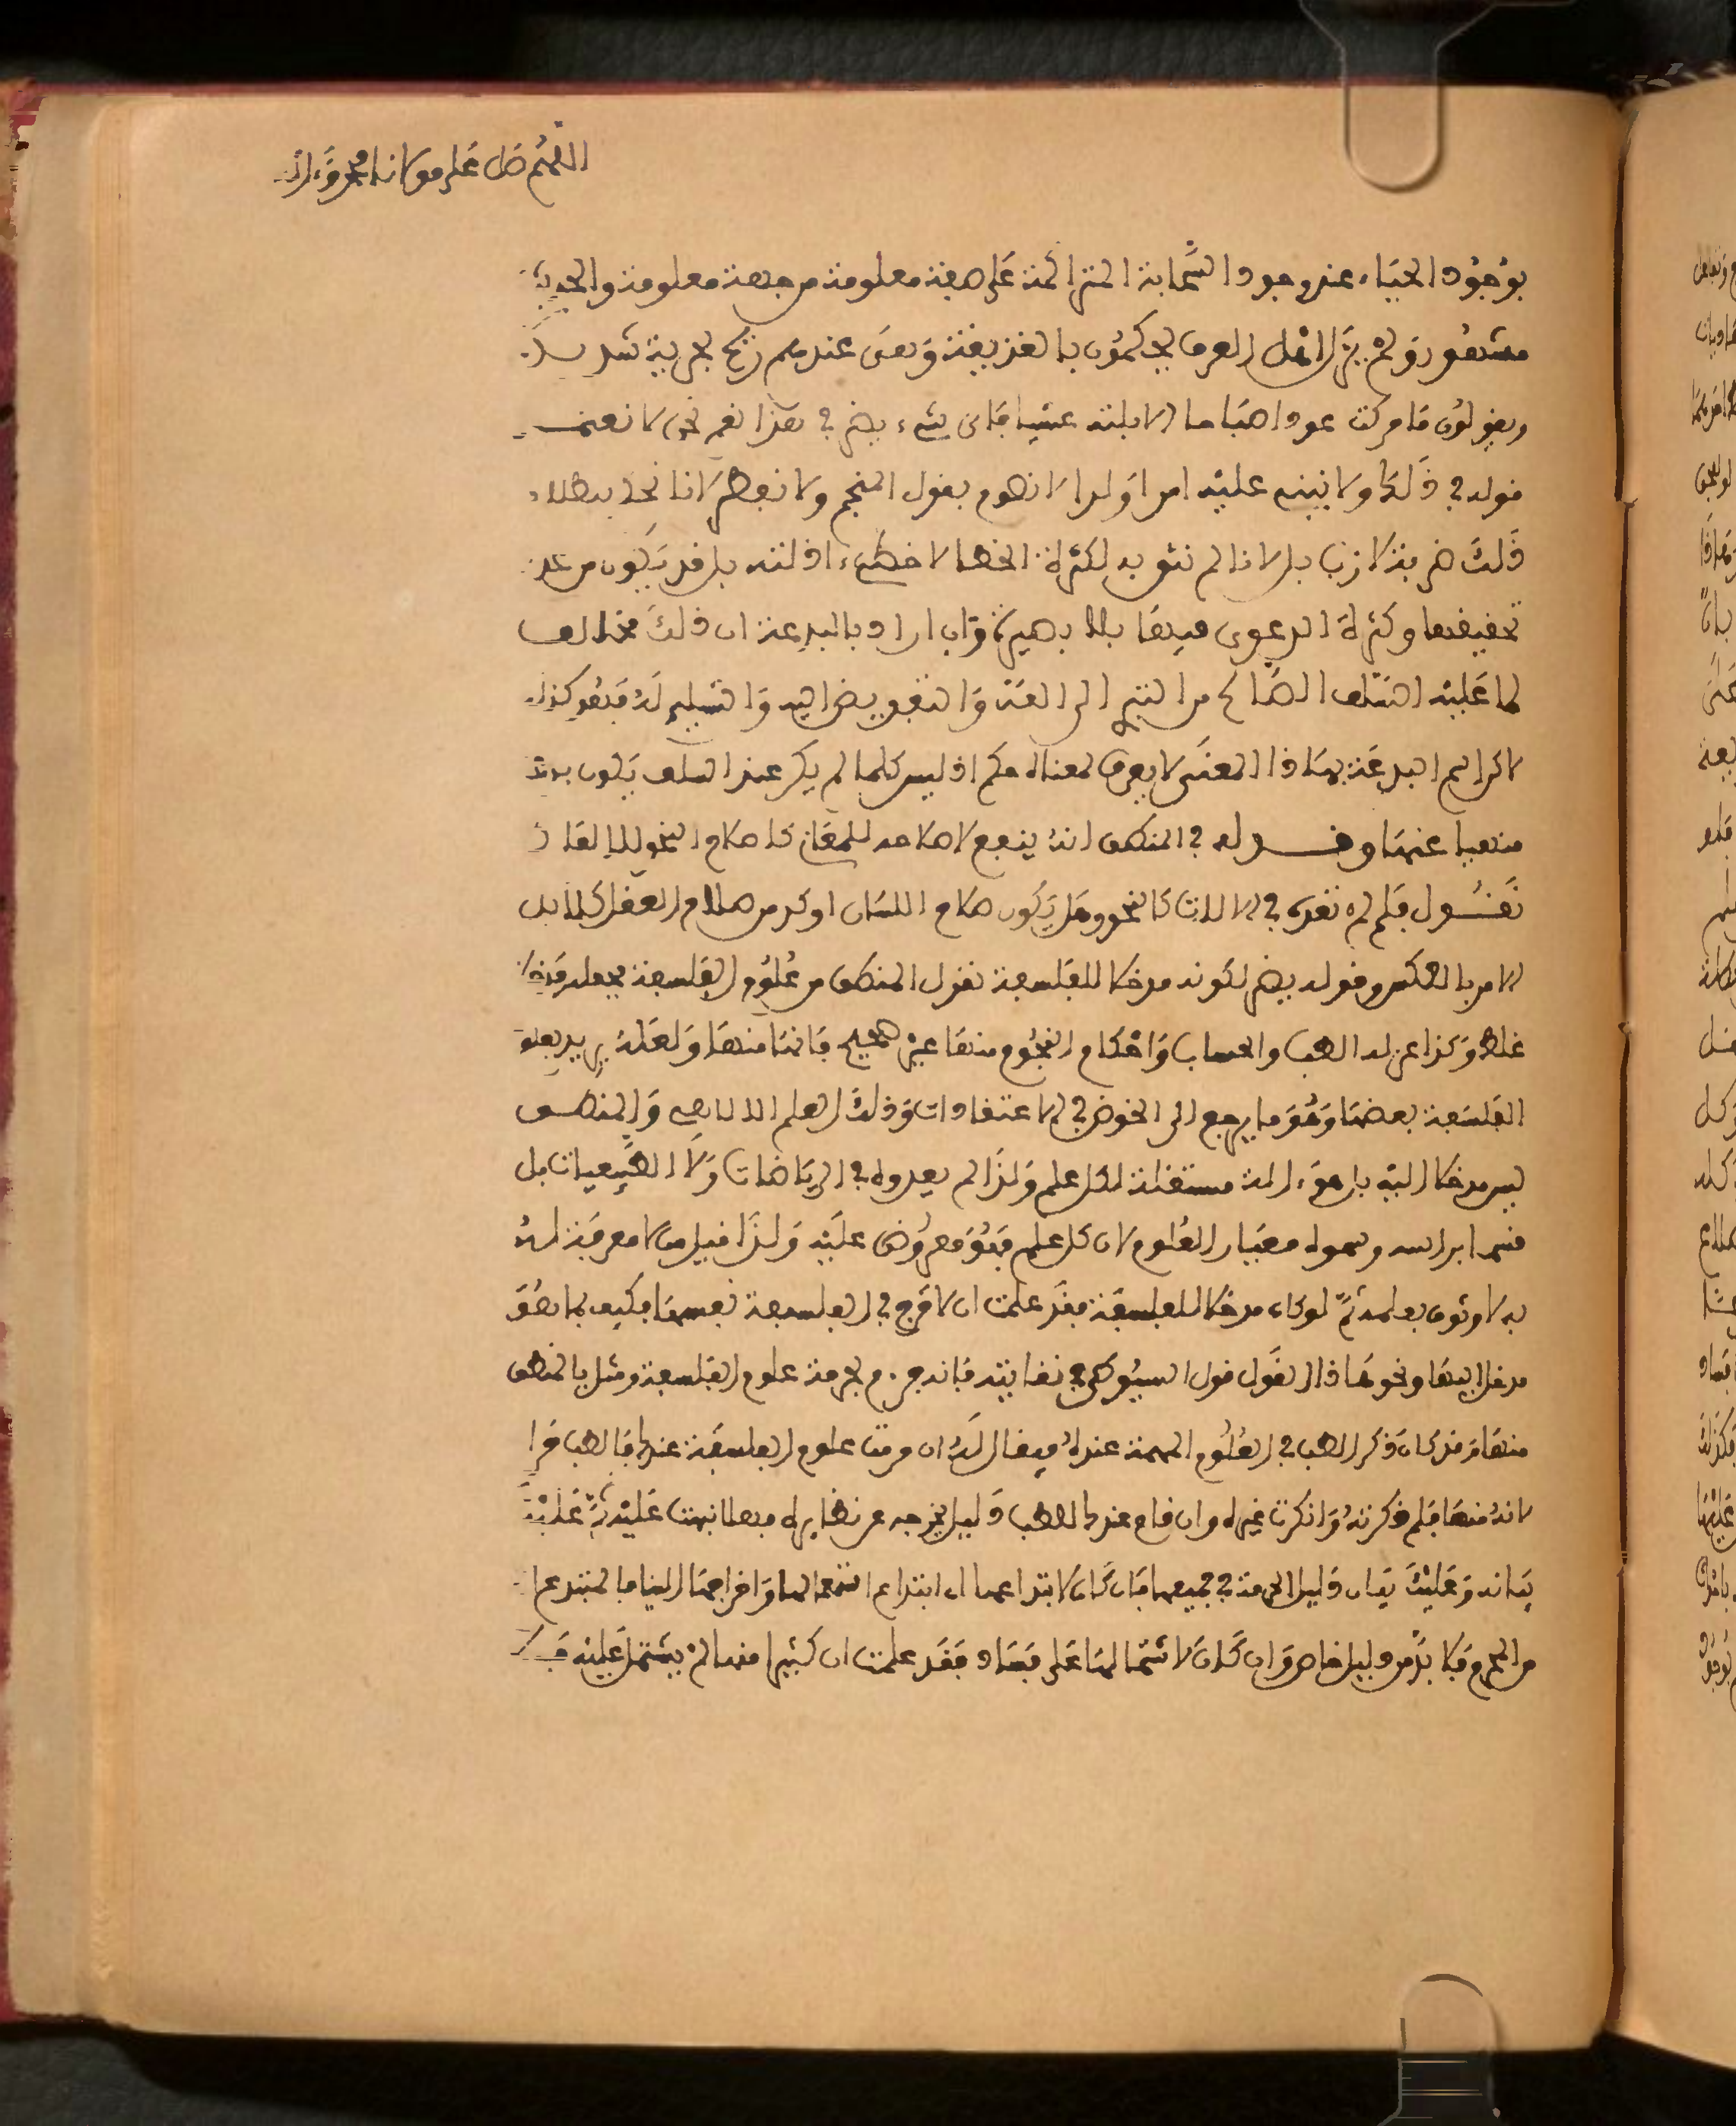 اللهم صل على مولانا محمد وءاله
بوجود الحياء عند وجود السحابة المتراكمة على هيئة معلومة من جهة معلومة والتجربة
مشهور ولم يزل اهل العرف يحكمون بالعزيفة وبعض عندهم ريح بحرية
ويقولون فا من كتب عودا لاقبلته عشيا فاى شىء يضر في هذا نعم نحن لا نعتمد
قوله في ذلك ولا نبنى عليه امرا ولو لا نهوم بقول المنجم ولا نفطر لانا نحن ببطلان
ذلك ضربة لازب بل لانا لم نثق به لكثرة الخطا لا خطىء ادلته بل قد يكون من عدم
تحقيقها وكثرة الدعوى فيها بلا بصيرة وان اراد بالبدعة ان ذلك مخالف
لما عليه السلف الصالح من التبرى الى الله والتفويض اليه والتسليم له فهو كذلك
لاكن اسم البدعة بهذا المعنى لا يعرف لمعناه حكم اذ ليس كلما لم يكن عند السلف يكون بدعة
منهيا عنها وقوله في المنطق انه ينفع لاصلاحه للمعانى كاصلاح النحو للالفاظ
نقول فلم لم تعده في الالات كالنحو وهل يكون صلاح اللسان اوكد من صلاح العقل كلا بل
الامر بالعكس وقوله يضر لكونه مدخلا للفلسفة نقول المنطق من علوم الفلسفة فجعله مدخلا
غلط وكذا عزله الطب والحساب واحكام النجوم منها غير صحيح فانها منها ولعله يريد بعلوم
الفلسفة بعضها وهو ما يرجع الى الخوض في الاعتقادات وذلك العلم الالاهى والمنطق
ليس مدخلا اليه بل هو ءالة مستقلة لكل علم ولذا لم يعدوه في الرياضات ولا الطبيعيات بل
قسما براسه وسموه معيار العلوم لان كل علم فهو معروض عليه ولذا قيل من لا معرفة له
به لا وثوق بعلمه ثم لو كان مدخلا للفلسفة فقد علمت ان لا حرج في الفلسفة نفسها فكيف بما هو
مدخل اليها ونحو هذا القول قول السيوطى في نقايته فانه جزم بحرمة علوم الفلسفة ومثل بالمنطق
منها وقد كان ذكر الطب في العلوم المهمة عنده فيقال له ان حرمت علوم الفلسفة عندك فالطب حرام
لانه منها فلم ذكرته وانكرت غيره وان قام عندك للطب دليل يخرجه عن نظايره فهلا نبهت عليه ثم عليك
بيانه وعليك بيان دليل الحرمة في جميعها فان كان لابتداعها اى ابتداع اشتغالها واخراجها الينا فالمبتدع
من المحرم فلا بد من دليل خاص وان كان لاشتمالها على فساد فقد علمت ان كثيرا منها لم يشتمل عليه